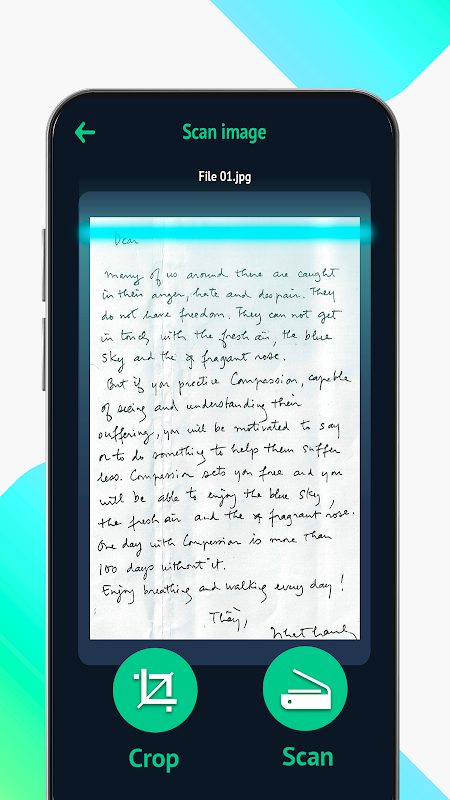 Scan image
File 01.jpg
Dear
Many of us around there are caught
in their anger, hate and despair. They
do not have freedom. They can not get
in touch with the fresh air, the blue
sky and the fragrant rose.
But if you practice Compession, capable
of seeing and understanding their
suffering, you will be motivated to say
or to do something to help them suffer
less. Compession sets you free and you
will be able to enjoy the blue sky,
the fresh air and the fragrant rose.
One day with Compession is more than
100 days without it.
Enjoy breathing and walking every day!
Thầy,
Nhat Hanh
Crop
Scan